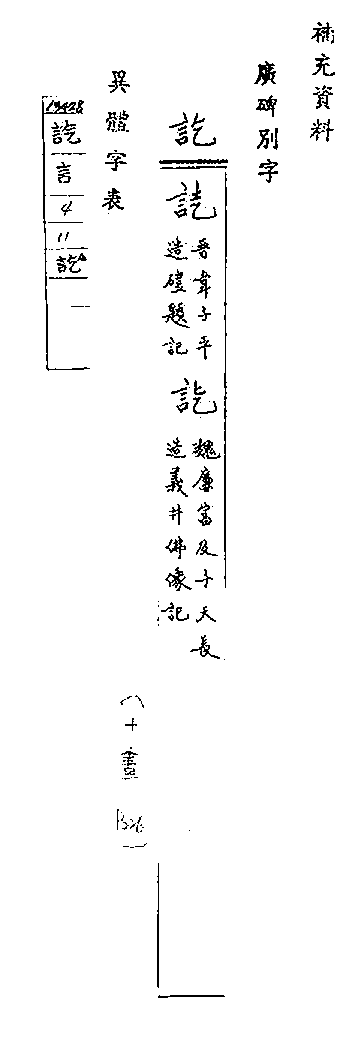 補充資料
廣碑別字
訖
晉韋子平
造磑題記
訖
魏廉富及子天長
造義井佛像記
(十畫
異體字表
19428
訖
言
4
11
訖